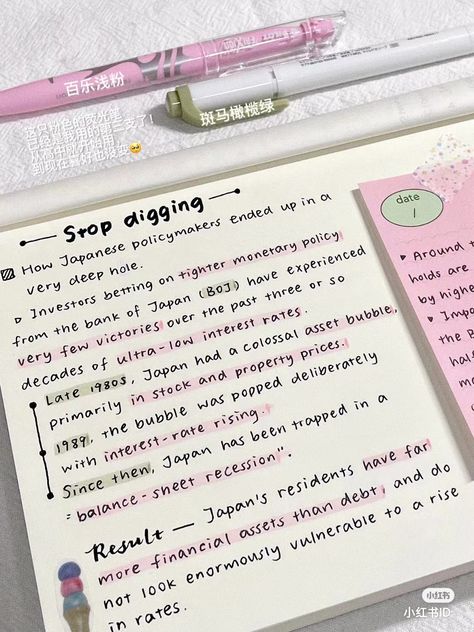 百乐浅粉
斑马橄榄绿
到现在
Stop digging
How Japanese policymakers ended up in a
very deep hole.
Investors betting on tighter monetary policy
from the bank of Japan (BOJ) have experienced
very few victories over the past three or so
decades of ultra-low interest rates.
Late 1980s, Japan had a colossal asset bubble,
primarily in stock and property prices.
1989, the bubble was popped deliberately
with interest-rate rising.
Since then, Japan has been trapped in a
"balance-sheet recession".
Result — Japan's residents have far
more financial assets than debt, and do
not look enormously vulnerable to a rise
in rates.
date
/
Around
holds are
by highe
Impo
the B
half
小红书
小红书ID: